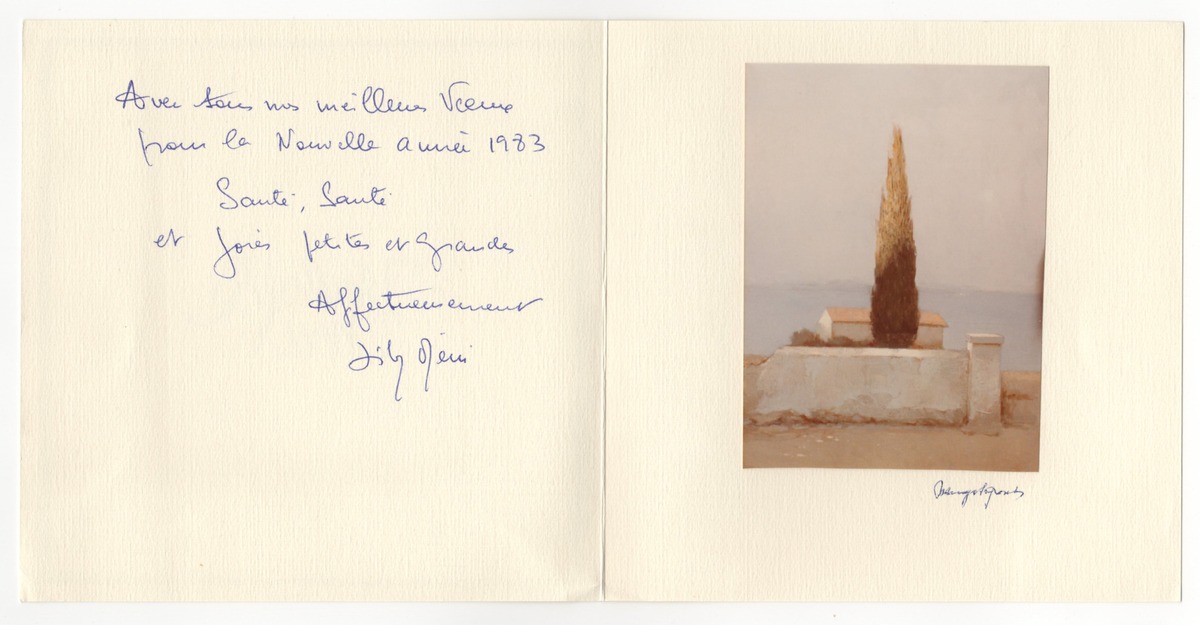 Avec tous nos meilleurs Vœux
pour la Nouvelle année 1983
Santé, Santé
et Joies petites et Grandes
Affectueusement